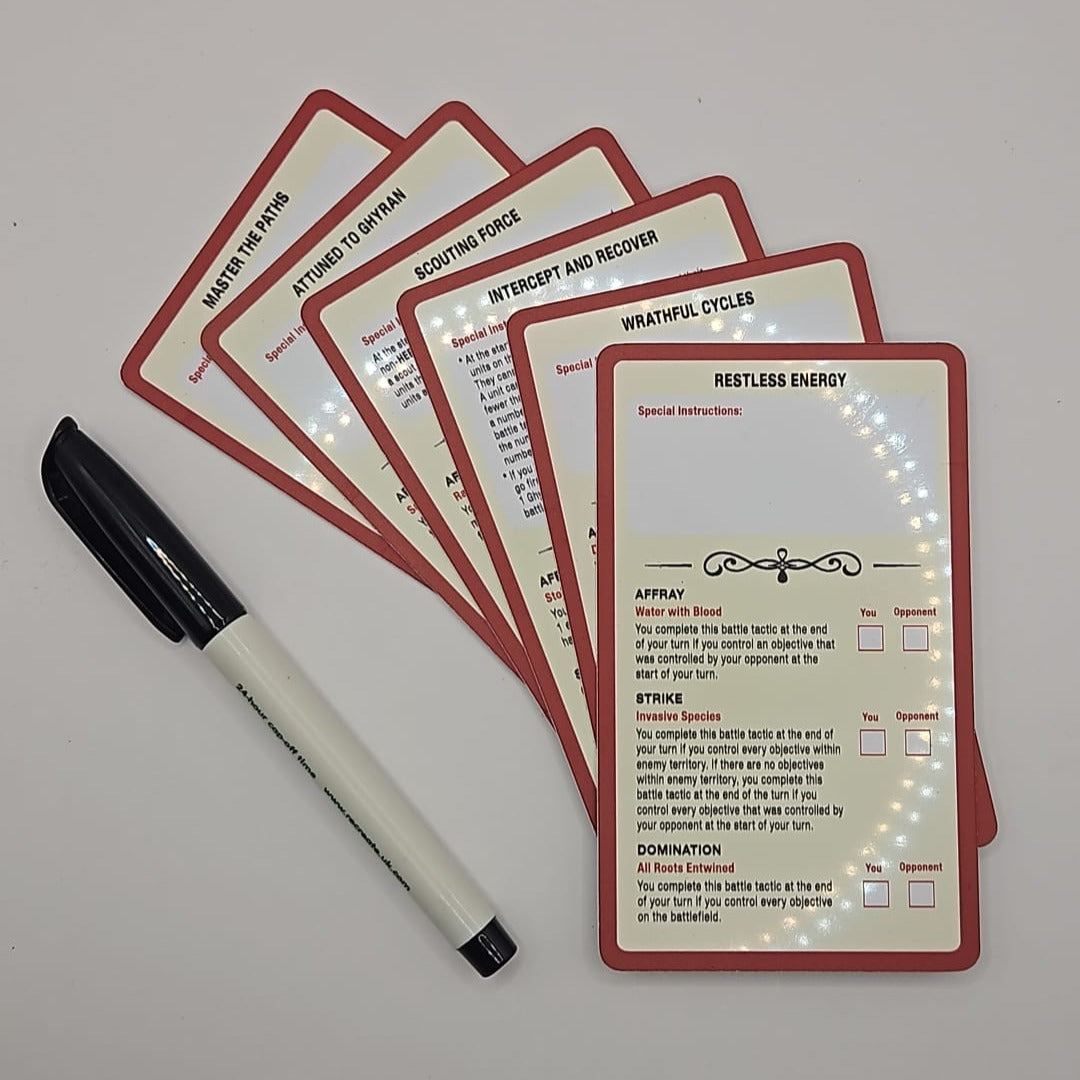 MASTER THE PATHS
ATTUNED TO GHYRAN
Special
SCOUTING FORCE
Special
At the
non-
a scout
units
units
INTERCEPT AND RECOVER
Special
• At the star
units on
They
A unit
fewer
a
battle
the
• If you
go
1
WRATHFUL CYCLES
Special
RESTLESS ENERGY
Special Instructions:
AFFRAY
Water with Blood
You Opponent
You complete this battle tactic at the end
of your turn if you control an objective that
was controlled by your opponent at the
start of your turn.
STRIKE
Invasive Species
You Opponent
You complete this battle tactic at the end of
your turn if you control every objective within
enemy territory. If there are no objectives
within enemy territory, you complete this
battle tactic at the end of the turn if you
control every objective that was controlled by
your opponent at the start of your turn.
DOMINATION
All Roots Entwined
You Opponent
You complete this battle tactic at the end
of your turn if you control every objective
on the battlefield.
24-hour cap-off time www.recreate.uk.com